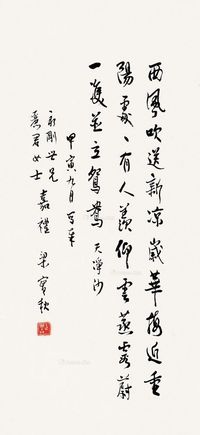 西風吹送新涼歲華將近重
陽處處有人羨仰雲蒸霞蔚
一雙並立鴛鴦 天淨沙
甲寅九月 書奉
立剛世兄
蕙君女士 嘉禮 梁寒秋